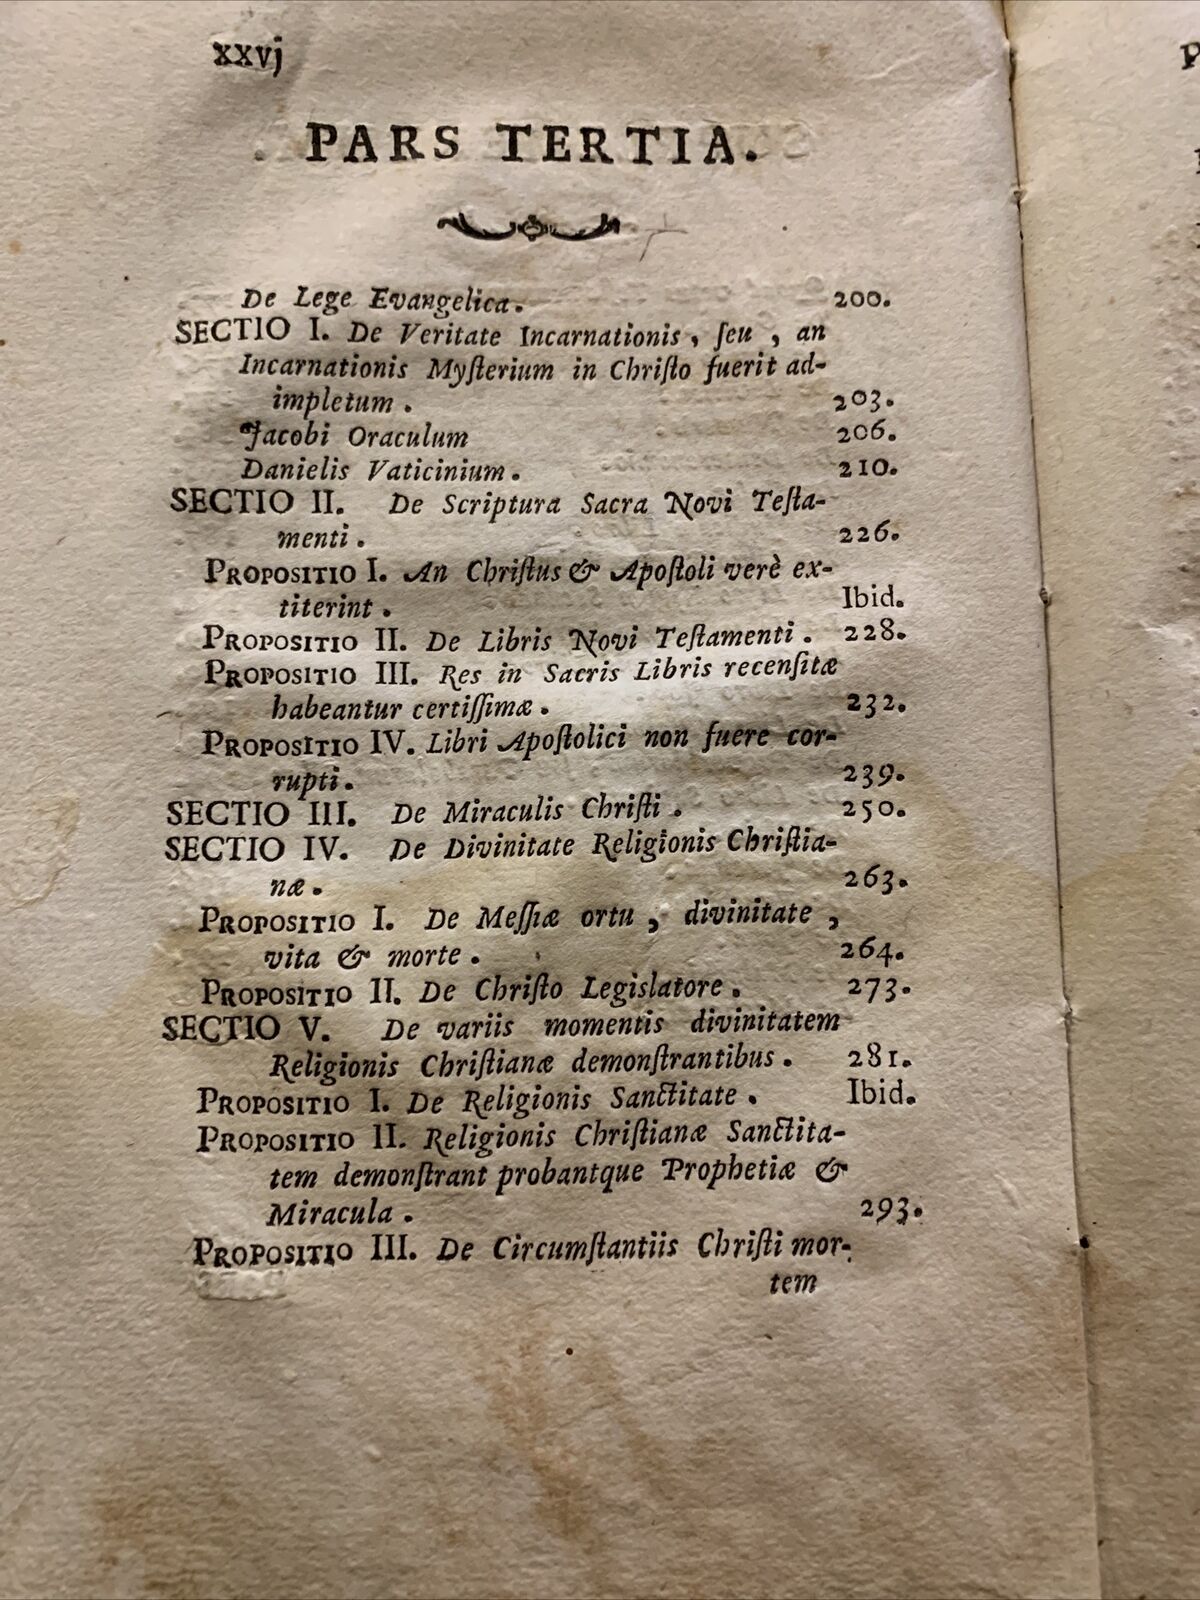 xxvj
PARS TERTIA.
De Lege Evangelica. 200.
SECTIO I. De Veritate Incarnationis, ſeu, an
Incarnationis Myſterium in Chriſto fuerit ad-
impletum. 203.
Jacobi Oraculum 206.
Danielis Vaticinium. 210.
SECTIO II. De Scriptura Sacra Novi Teſta-
menti. 226.
PROPOSITIO I. An Chriſtus & Apoſtoli verè ex-
titerint. Ibid.
PROPOSITIO II. De Libris Novi Teſtamenti. 228.
PROPOSITIO III. Res in Sacris Libris recenſitæ
habeantur certiſſimæ. 232.
PROPOSITIO IV. Libri Apoſtolici non fuere cor-
rupti. 239.
SECTIO III. De Miraculis Chriſti. 250.
SECTIO IV. De Divinitate Religionis Chriſtia-
næ. 263.
PROPOSITIO I. De Meſſiæ ortu, divinitate,
vita & morte. 264.
PROPOSITIO II. De Chriſto Legislatore. 273.
SECTIO V. De variis momentis divinitatem
Religionis Chriſtianæ demonſtrantibus. 281.
PROPOSITIO I. De Religionis Sanctitate. Ibid.
PROPOSITIO II. Religionis Chriſtianæ Sanctita-
tem demonſtrant probantque Prophetiæ &
Miracula. 293.
PROPOSITIO III. De Circumſtantiis Chriſti mor-
tem